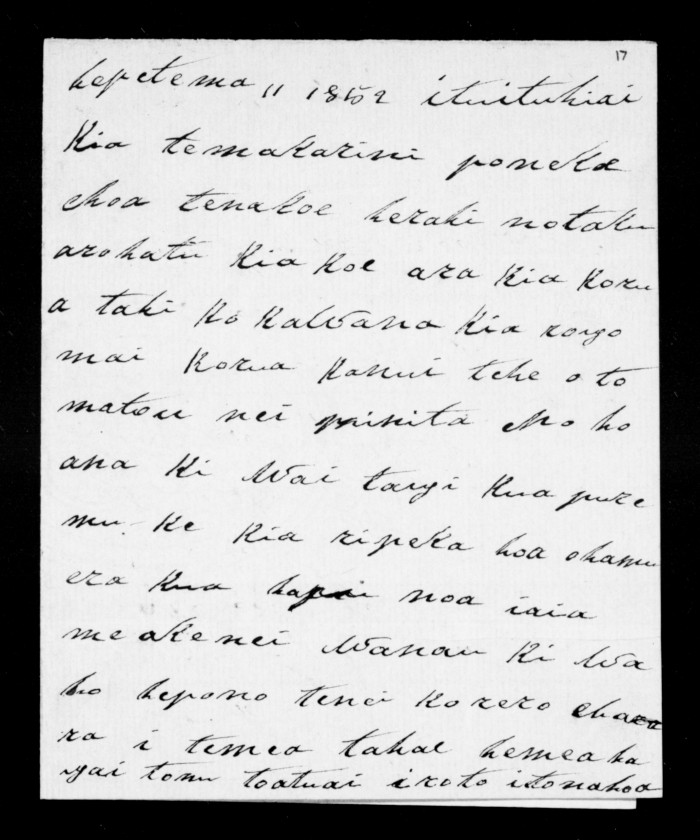 17
hepetema 11 1852 ituituhiai
Kia temakarini poneke
ehoa tenakoe heraki notaku
arohatu Kia koe ara Kia Koru
a tahi ko Kawana Kia rongo
mai Korua Kanui tehe oto
matou nei minita eNoho
ana Ki Waitangi Kua pure
mu Ke Kia ripeka hoa ohamu
era Kua hapai noa iaia
meakenei Wanau Ki Wa
ho hepono tenei Korero ehara
ra i temea tahae hemeaha
ngai tonu toatuai iroto itonahoa